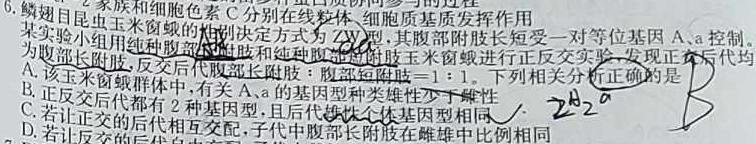 2 家族和细胞色素 C 分别在线粒体、细胞质基质发挥作用
6. 鳞翅目昆虫玉米窗蛾的性别决定方式为 ZW 型,其腹部附肢长短受一对等位基因 A、a 控制。
某实验小组用纯种腹部长附肢和纯种腹部短附肢玉米窗蛾进行正反交实验,发现正交后代均
为腹部长附肢,反交后代腹部长附肢:腹部短附肢=1:1。下列相关分析正确的是
A. 该玉米窗蛾群体中,有关 A、a 的基因型种类雄性少于雌性
B. 正反交后代都有 2 种基因型,且后代雄性个体基因型相同
C. 若让正交的后代相互交配,子代中腹部长附肢在雌雄中比例相同
D. 若让反交的后代自由交配
aa
Z^A Z^a
B